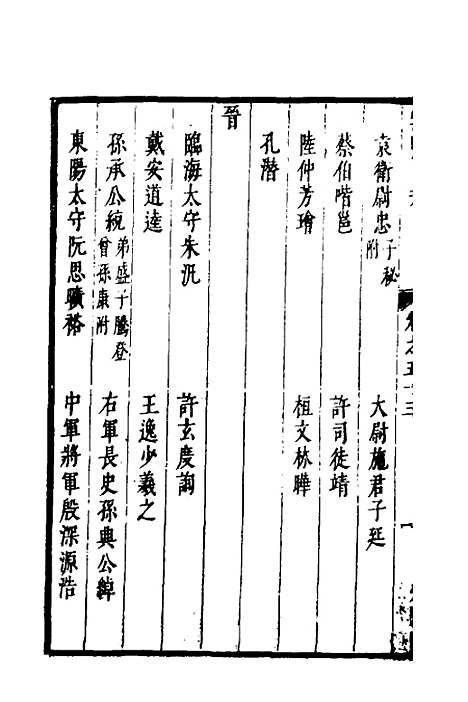 卷之五十三
袁衛尉忠子秘附 大尉施君子延
蔡伯喈邕 許司徒靖
陸仲芳璯 桓文林曄
孔潛
晉
臨海太守朱汎 許玄度詢
戴安道逵 王逸少羲之
孫承公統弟盛子騰登曾孫康附 右軍長史孫興公綽
東陽太守阮思曠裕 中軍將軍殷深源浩